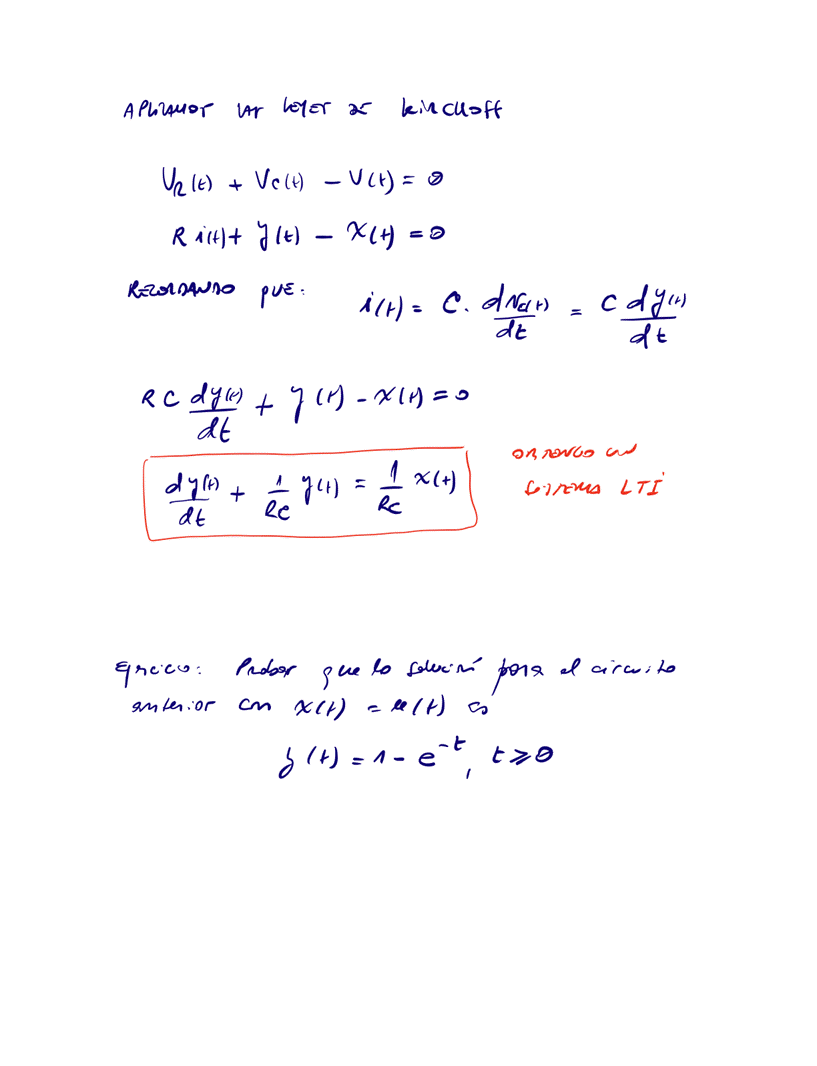 APLICAMOS LAS LEYES DE KIRCHOFF
V_R(t) + V_C(t) - V(t) = 0
R i(t) + y(t) - x(t) = 0
RECORDANDO QUE: i(t) = C · dV_C(t)/dt = C dy(t)/dt
RC dy(t)/dt + y(t) - x(t) = 0
dy(t)/dt + 1/RC y(t) = 1/RC x(t)
OBTENGO UN
SISTEMA LTI
Probar que la solución para el circuito
anterior con x(t) = u(t) es
y(t) = 1 - e^-t, t ≥ 0